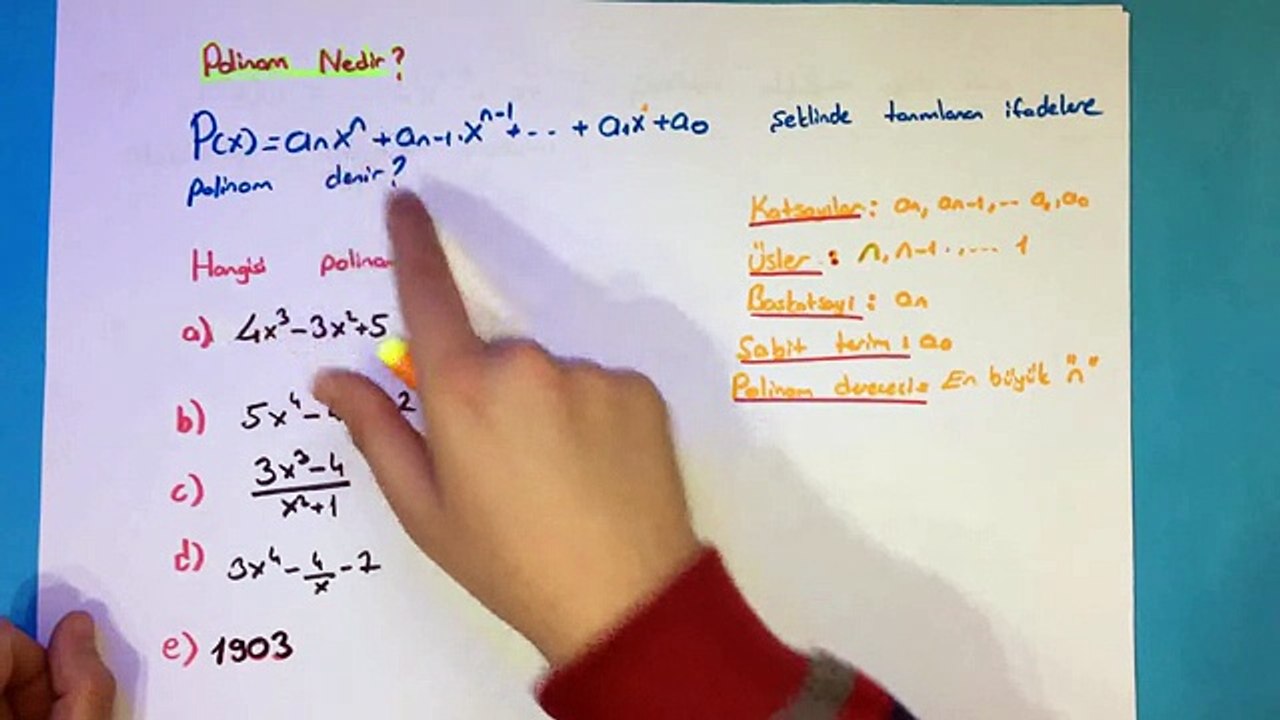 Polinom Nedir?
P(x) = aₙxⁿ + aₙ₋₁.xⁿ⁻¹ + ... + a₁x¹ + a₀ şeklinde tanımlanan ifadelere
polinom denir?
Katsayılar : aₙ, aₙ₋₁, ... a₁, a₀
Üsler : n, n-1 ., .... 1
Başkatsayı : aₙ
Sabit terim : a₀
Polinom derecesi = En büyük "n"
Hangisi
a) 4x³-3x²+5
b) 5x⁴-
c) (3x³-4)/(x²+1)
d) 3x⁴ - 4/x - 2
e) 1903